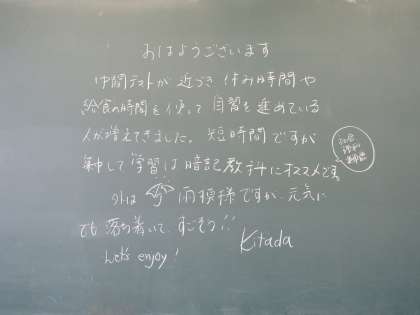 おはようございます
中間テストが近づき休み時間や
給食の時間を使って自習を進めている
人が増えてきました。短時間ですが
集中して学習は暗記教科にオススメです。
社会
理科
外は雨模様ですが、元気に
でも落ち着いて、すごそう!!
Let's enjoy!
Kitada